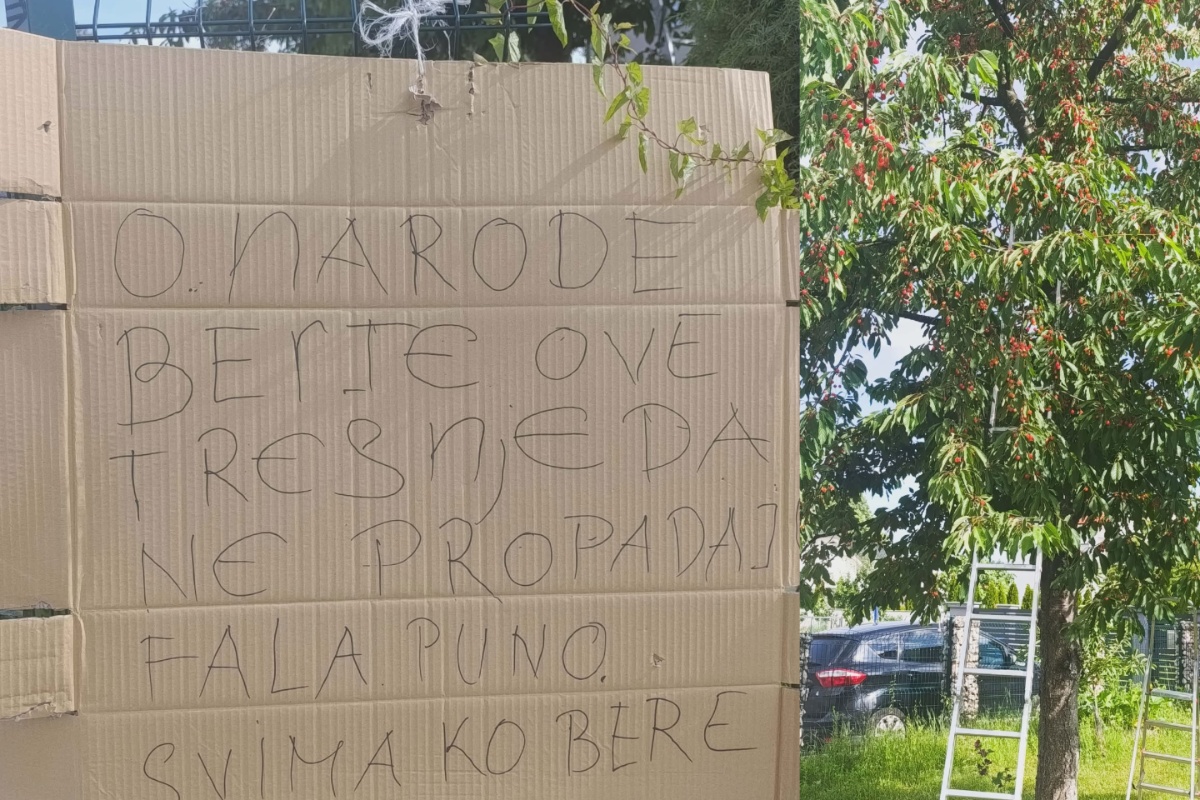 O.. NARODE
BERTE OVE
TREŠNjE DA
NE PROPADAJ
FALA PUNO.
SVIMA KO BERE